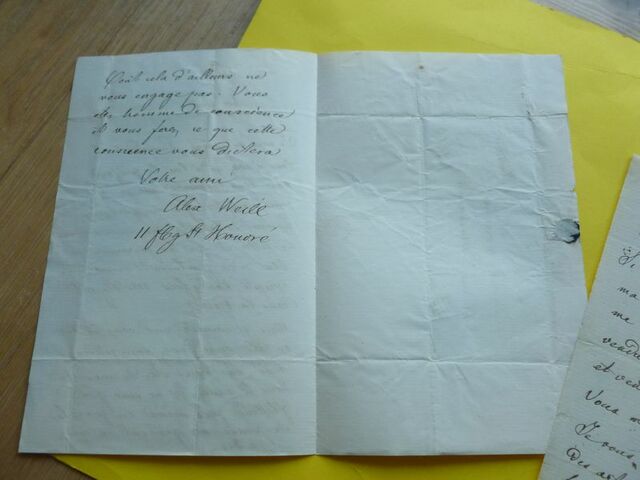 Tout cela d'ailleurs ne
vous engage pas. Vous
êtes homme de conscience
et vous ferez ce que cette
conscience vous dictera
Votre ami
Alex Weill
11 fbg St Honoré
Je
ma
me
vendre
et ven
Vous m
Je vous
Des